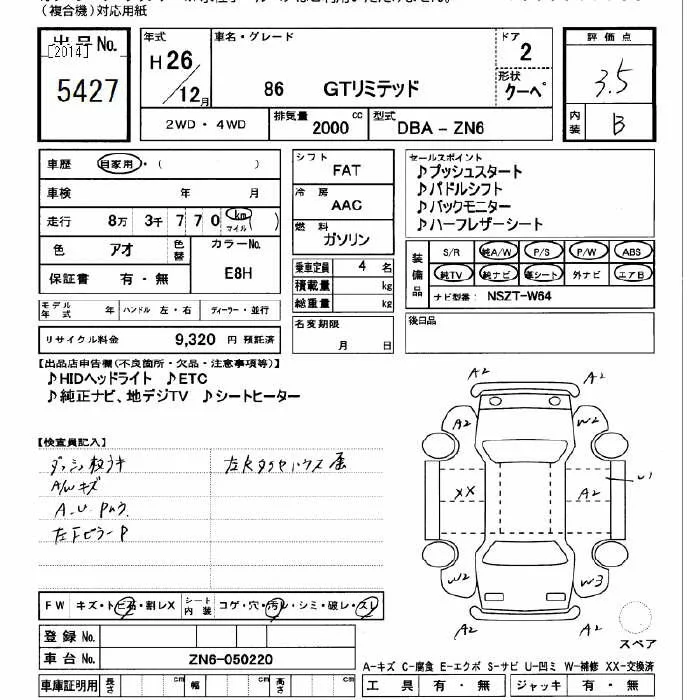 （複合機）対応用紙
出品No.
[2014]
5427
年式
H26/12月
車名・グレード
86 GTリミテッド
ドア
2
形状
クーペ
評価点
3.5
内装
B
2WD・4WD
排気量 2000 cc
型式 DBA-ZN6
車歴 自家用・（ ）
車検 年 月
走行 8万 3千 7 7 0 km マイル（ ）
色 アオ 色替 カラーNo. E8H
保証書 有・無
モデル年式 年 ハンドル 左・右 ディーラー・並行
リサイクル料金 9,320 円 預託済
シフト
FAT
冷房
AAC
燃料
ガソリン
乗車定員 4 名
積載量 kg
総重量 kg
名変期限
月 日
セールスポイント
♪プッシュスタート
♪パドルシフト
♪バックモニター
♪ハーフレザーシート
装備品
S/R 純A/W P/S P/W ABS
純TV 純ナビ 革シート 外ナビ エアB
ナビ型番： NSZT-W64
後日品
【出品店申告欄（不良箇所・欠品・注意事項等）】
♪HIDヘッドライト ♪ETC
♪純正ナビ、地デジTV ♪シートヒーター
【検査員記入】
A/Wキズ
左下ピラーP
A2 A2
A2 W2
XX A2 W1
W2 W3
A2 A2
スペア
FW キズ・トビ石・割レX シート内装 コゲ・穴・汚レ・シミ・破レ・スレ
登録No.
車台No. ZN6-050220
車庫証明用 長さ cm 幅 cm 高さ cm
A-キズ C-腐食 E-エクボ S-サビ U-凹ミ W-補修 XX-交換済
工具 有・無 ジャッキ 有・無